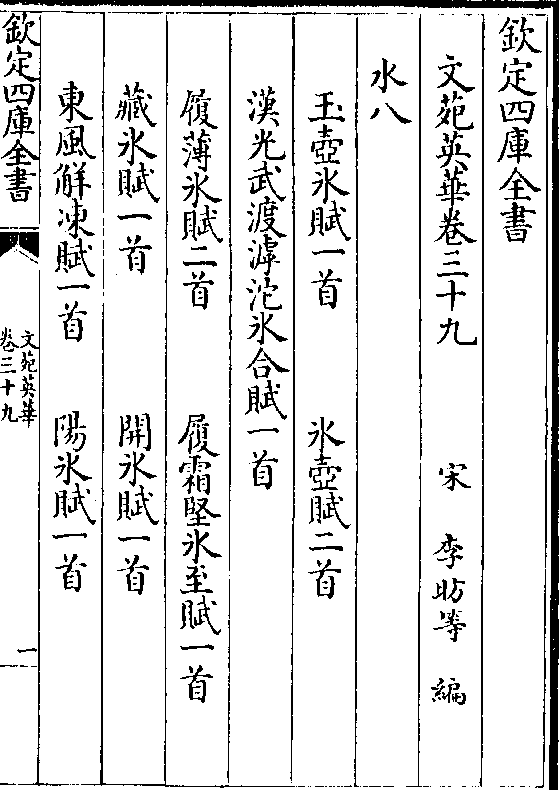 欽定四庫全書
文苑英華卷三十九
宋 李昉等 編
水八
玉壺氷賦一首 氷壺賦二首
漢光武渡滹沱氷合賦一首
履薄氷賦二首 履霜堅氷至賦一首
藏氷賦一首 開氷賦一首
東風解凍賦一首 陽氷賦一首
欽定四庫全書
文苑英華
卷三十九
一